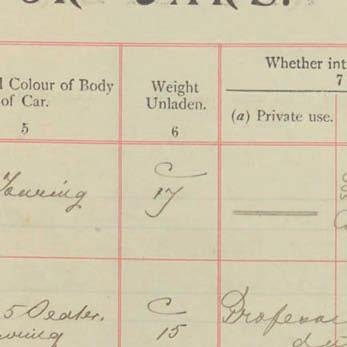 l Colour of Body
of Car.
5
Weight
Unladen.
6
Whether int
7
(a) Private use.
Touring
C
17
5 Seater.
C
15
Professio